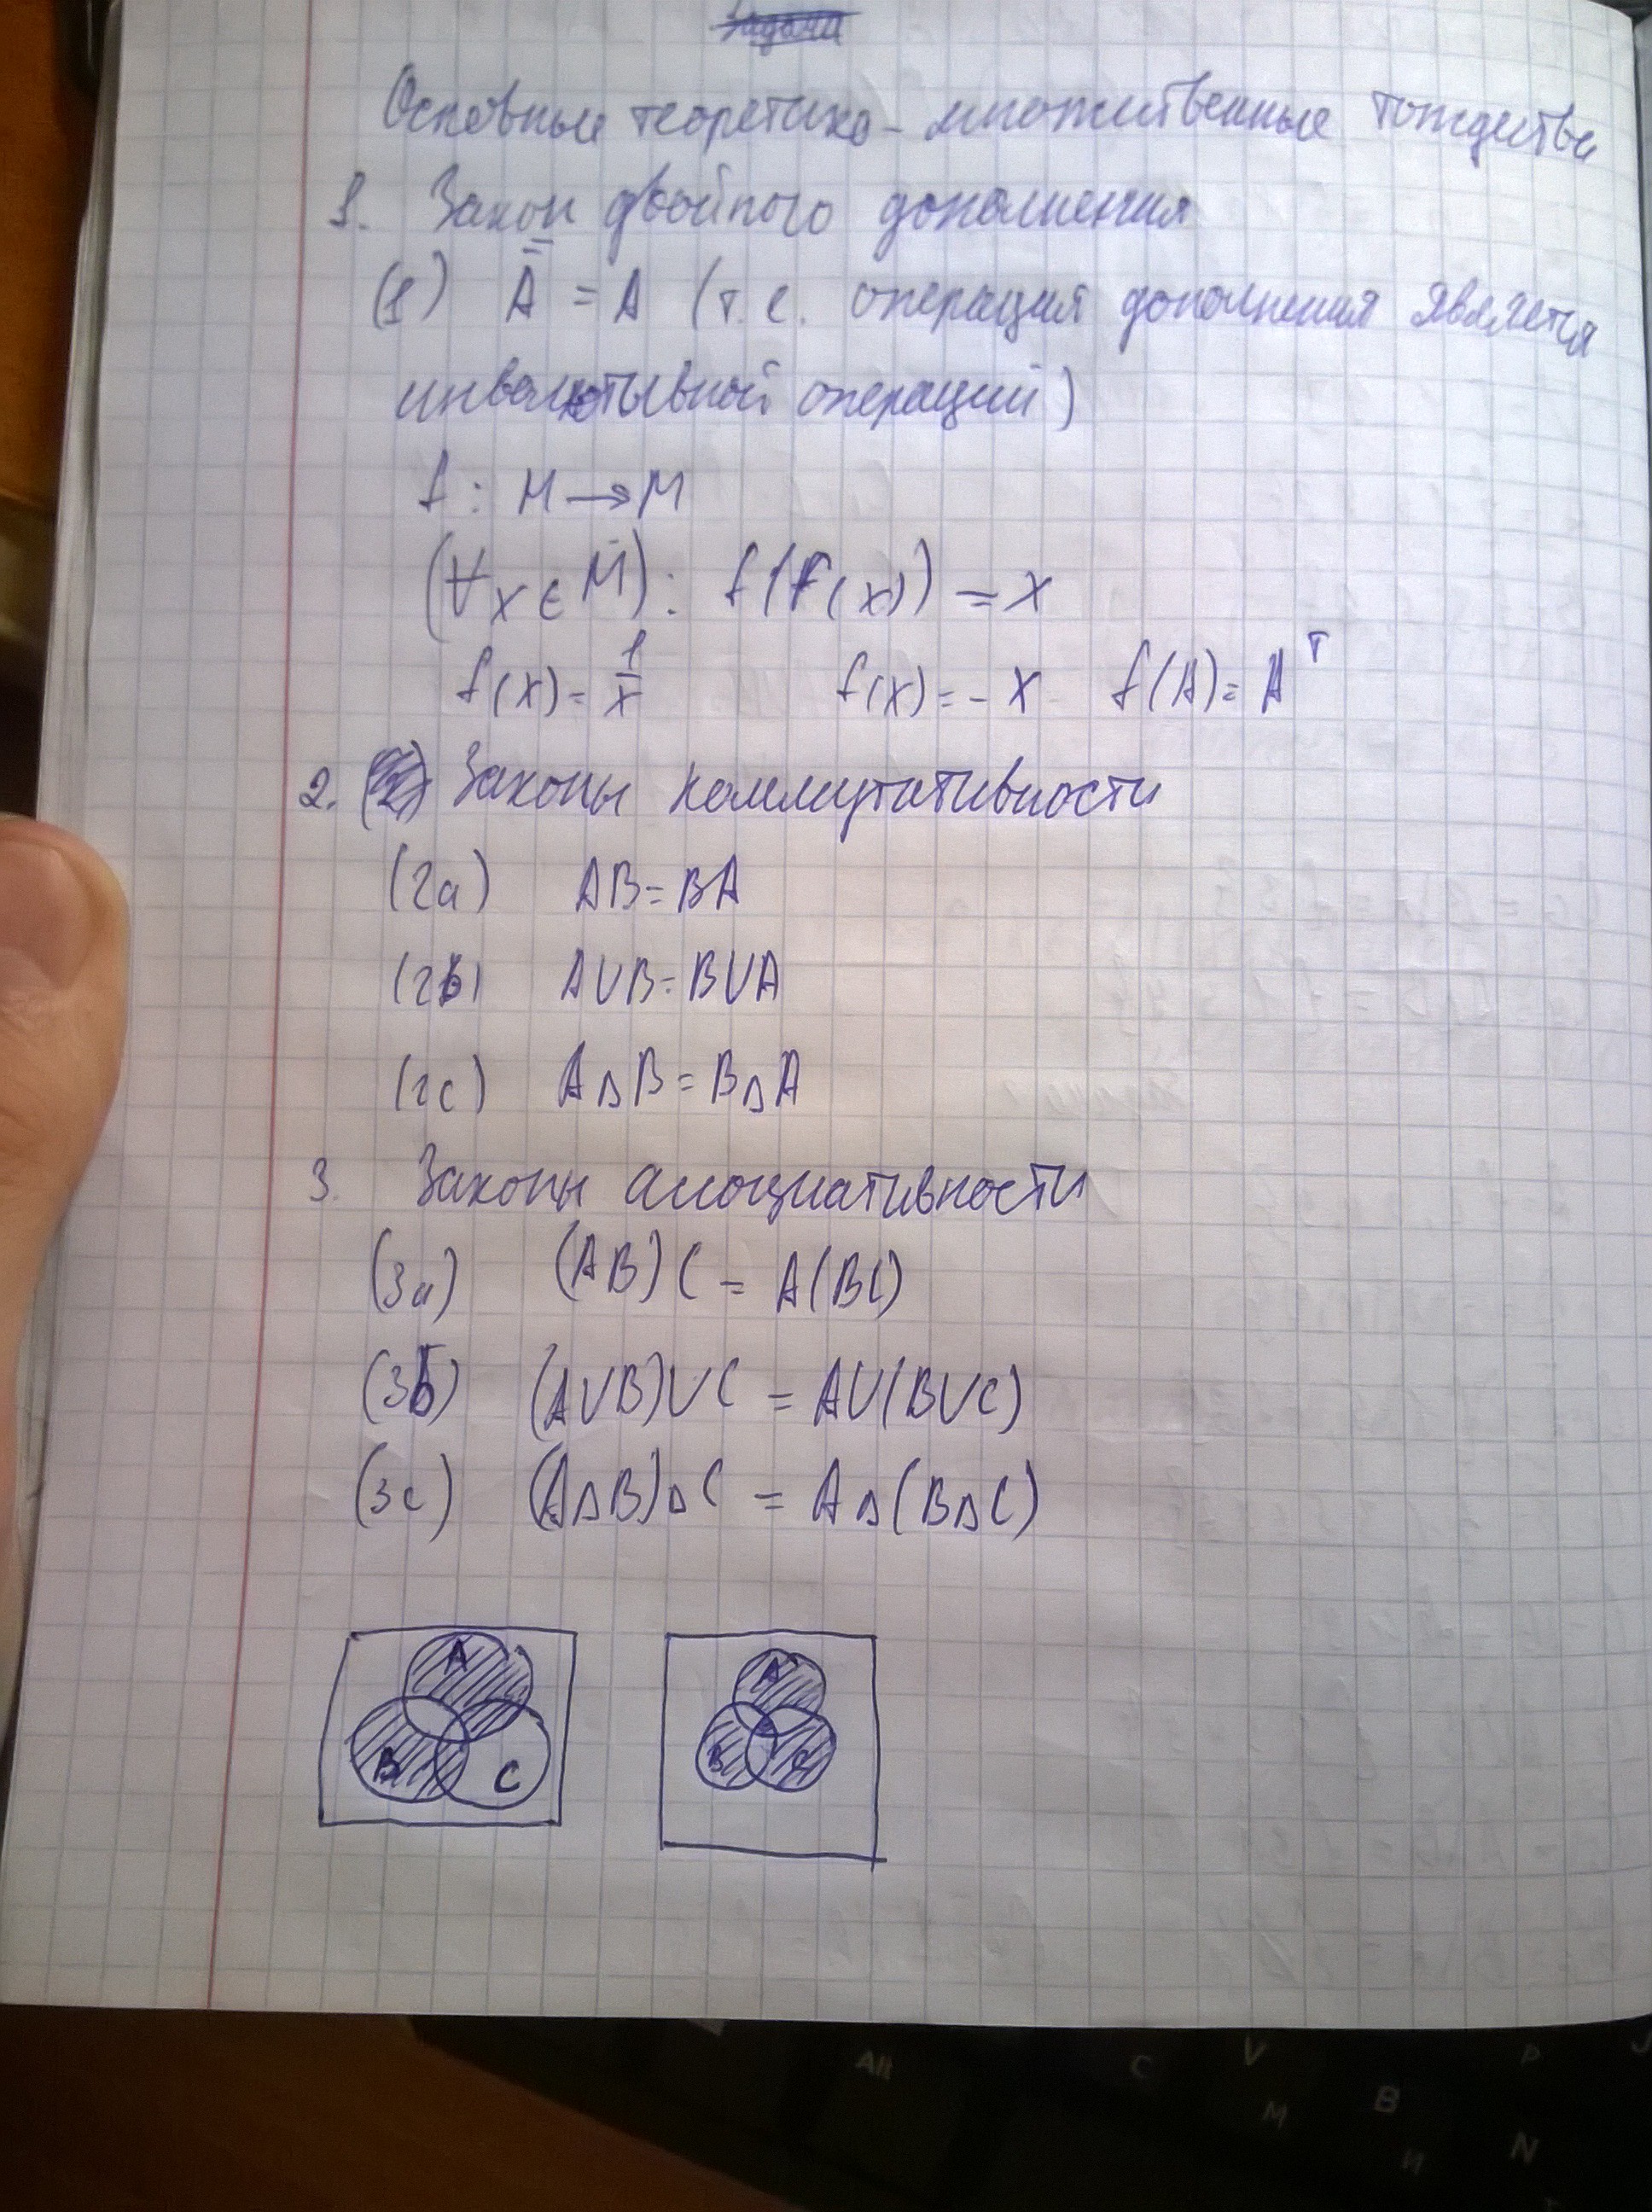 Задача
Основные теоретико-множественные тождества
1. Закон двойного дополнения
(1) A̿ = A (т.е. операция дополнения является
инволютивной операций)
f: M → M
(∀x ∈ M): f(f(x)) = x
f(x) = 1/x f(x) = -x f(A) = Aᵀ
2. Законы коммутативности
(2a) AB = BA
(2b) A∪B = B∪A
(2c) A∆B = B∆A
3. Законы ассоциативности
(3a) (AB)C = A(BC)
(3b) (A∪B)∪C = A∪(B∪C)
(3c) (A∆B)∆C = A∆(B∆C)
A A
B C B C
Alt C V B N J
М И Р